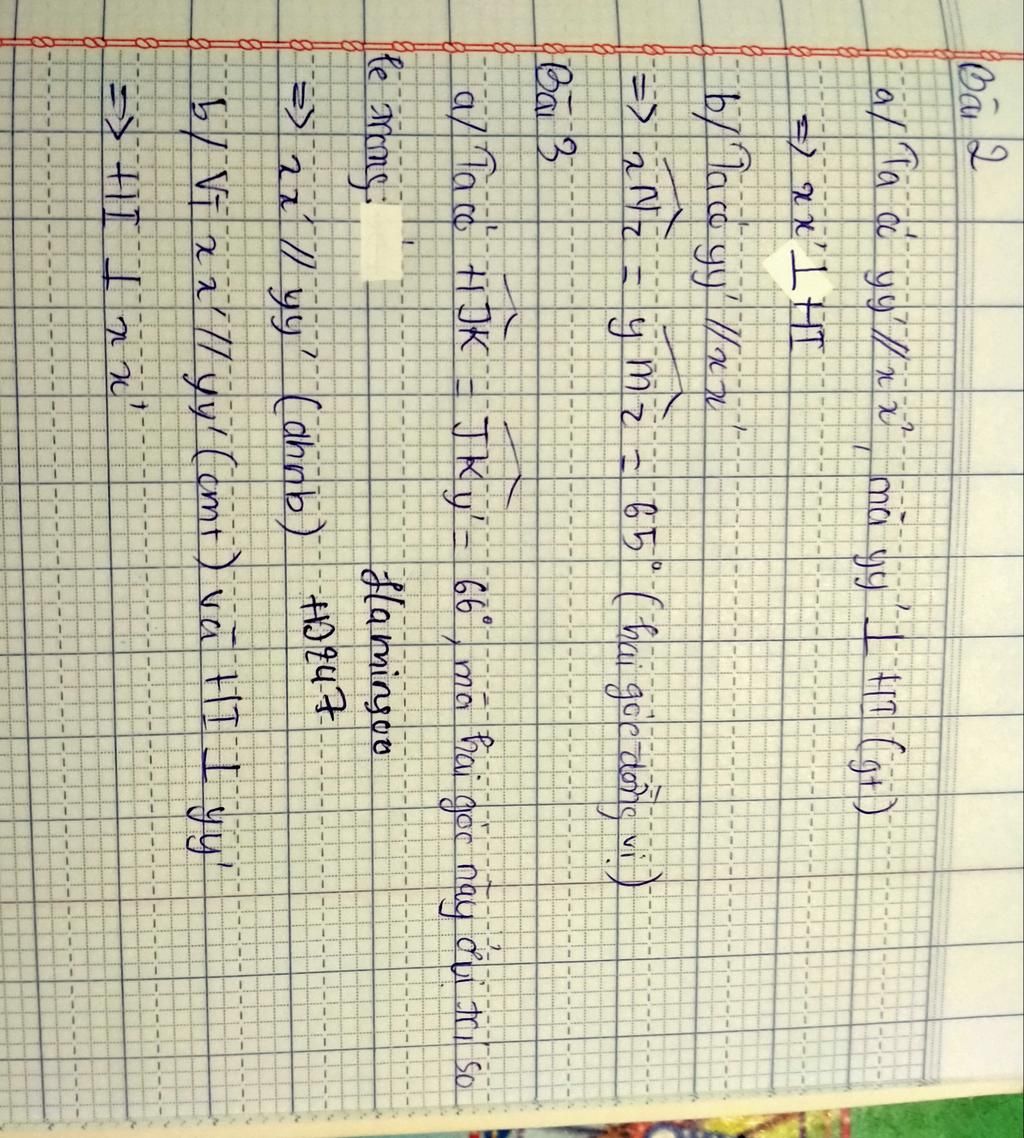 Bài 2
a/ Ta có yy' // xx', mà yy' ⊥ HI (gt)
=> xx' ⊥ HI
b/ Ta có yy' // xx'
=> xNz = ymz = 65° (hai góc đồng vị)
Bài 3
a/ Ta có HJK = JKy' = 66°, mà hai góc này ở vị trí so
le trong
flamingoo
=> xx' // yy' (dhnb)
HD247
b/ Vì xx' // yy' (cmt) và HI ⊥ yy'
=> HI ⊥ xx'